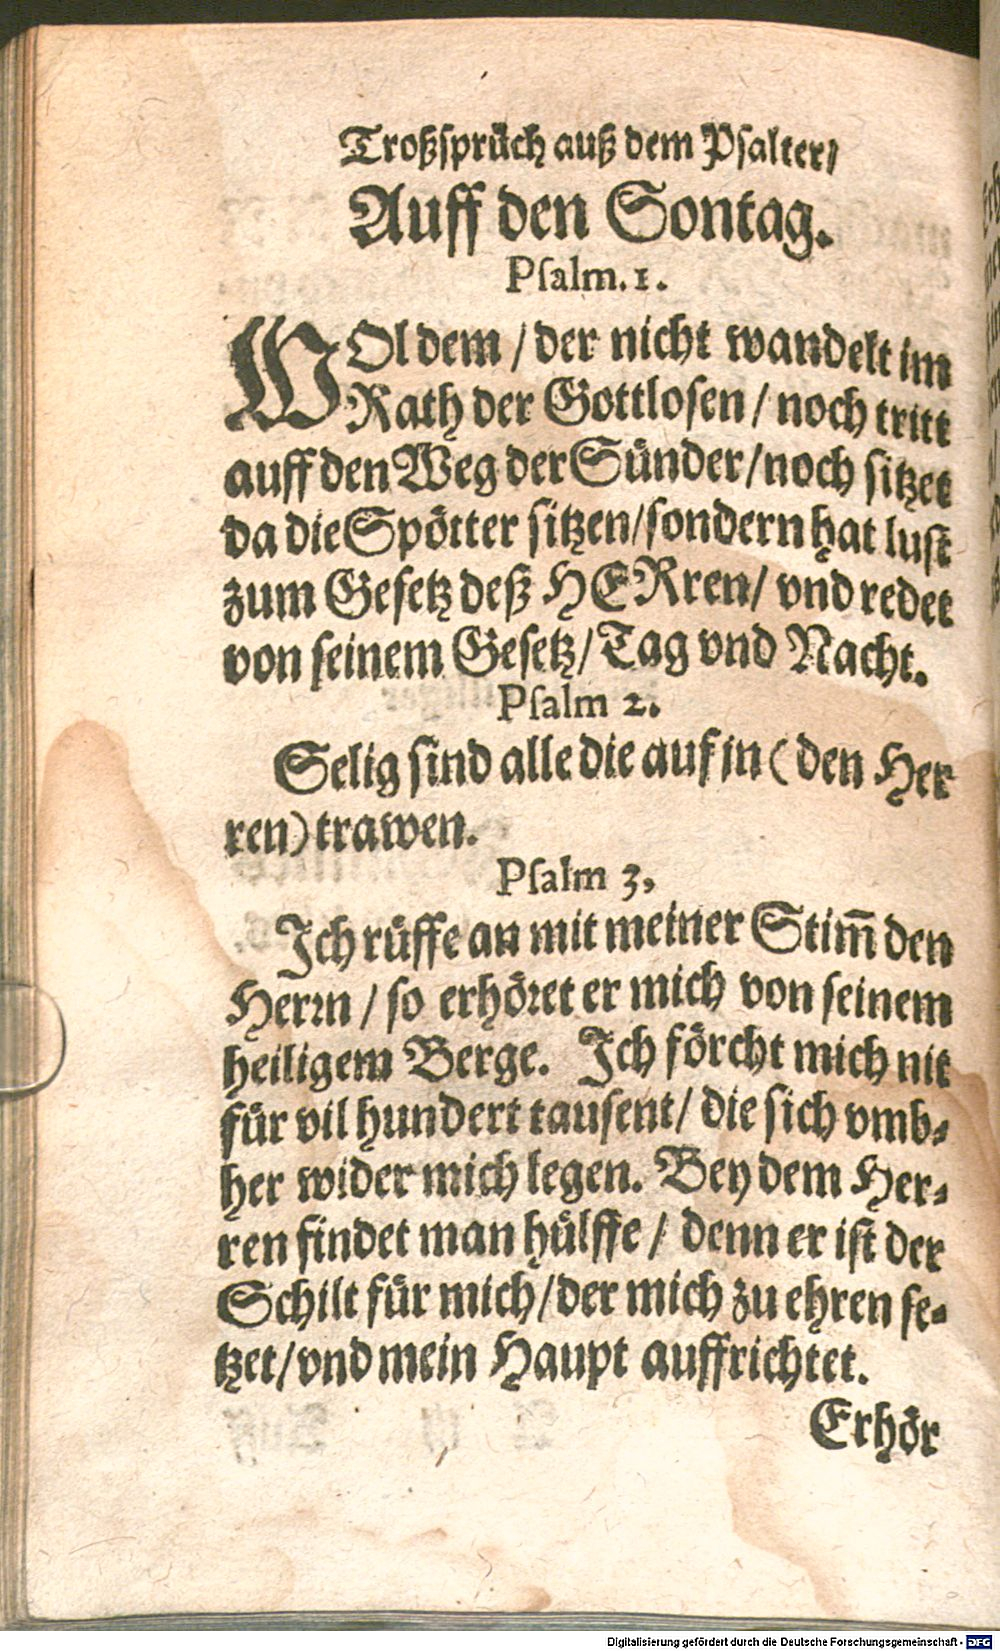 Troßsprüch auß dem Psalter/
Auff den Sontag.
Psalm. 1.
WOl dem / der nicht wandelt im
Rath der Gottlosen / noch tritt
auff den Weg der Sünder / noch sitzet
da die Spötter sitzen / sondern hat lust
zum Gesetz deß HERren / vnd redet
von seinem Gesetz / Tag vnd Nacht.
Psalm 2.
Selig sind alle die auf jn ( den Her
ren) trawen.
Psalm 3,
Ich rüffe an mit meiner Stim̃ den
Herrn / so erhöret er mich von seinem
heiligem Berge. Ich förcht mich nit
für vil hundert tausent / die sich vmb-
her wider mich legen. Bey dem Her-
ren findet man hülffe / denn er ist der
Schilt für mich / der mich zu ehren se-
tzet / vnd mein Haupt auffrichtet.
Erhör
Digitalisierung gefördert durch die Deutsche Forschungsgemeinschaft - DFG